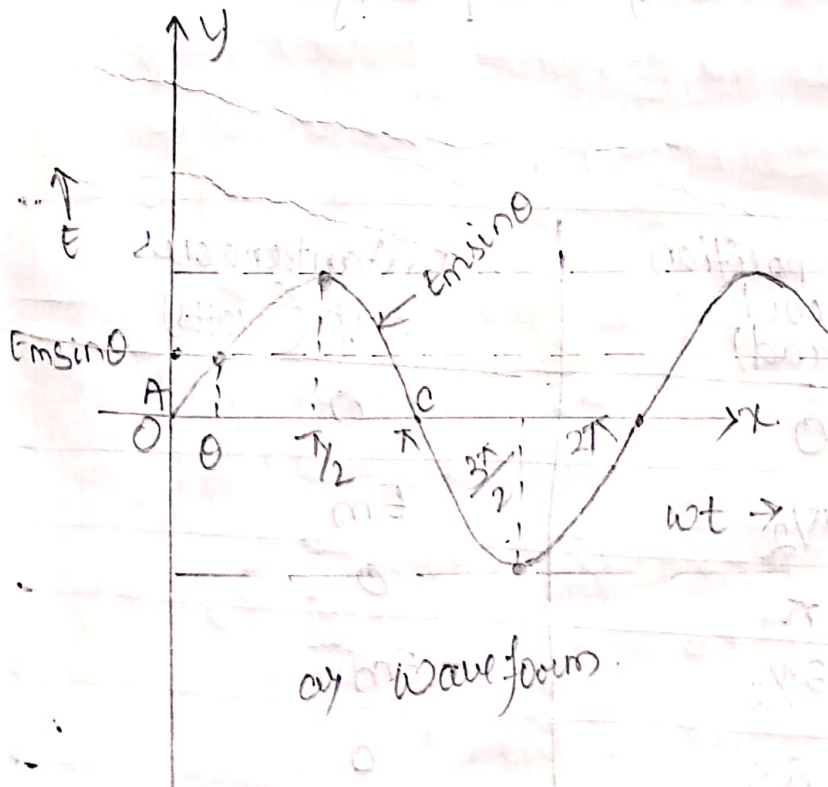 y
↑
E
Emsinθ
Emsinθ
A
O
θ
π/2
π
C
3π/2
2π
x
wt →
a) waveform.